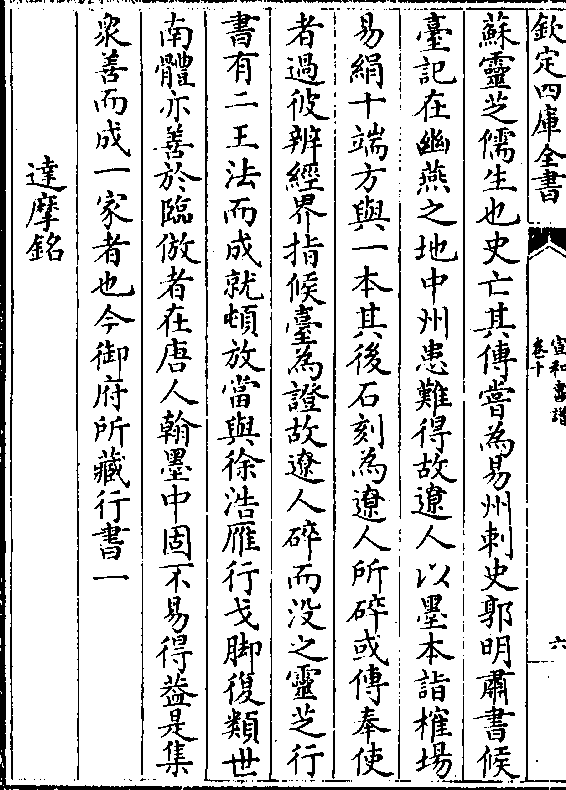 欽定四庫全書
宣和書譜
卷十
六
蘇靈芝儒生也史亡其傳嘗為易州刺史郭明肅書候
臺記在幽燕之地中州患難得故遼人以墨本詣榷場
易絹十端方與一本其後石刻為遼人所碎或傳奉使
者過彼辨經界指候臺為證故遼人碎而没之靈芝行
書有二王法而成就頓放當與徐浩雁行戈脚復類世
南體亦善於臨倣者在唐人翰墨中固不易得葢是集
衆善而成一家者也今御府所藏行書一
達摩銘